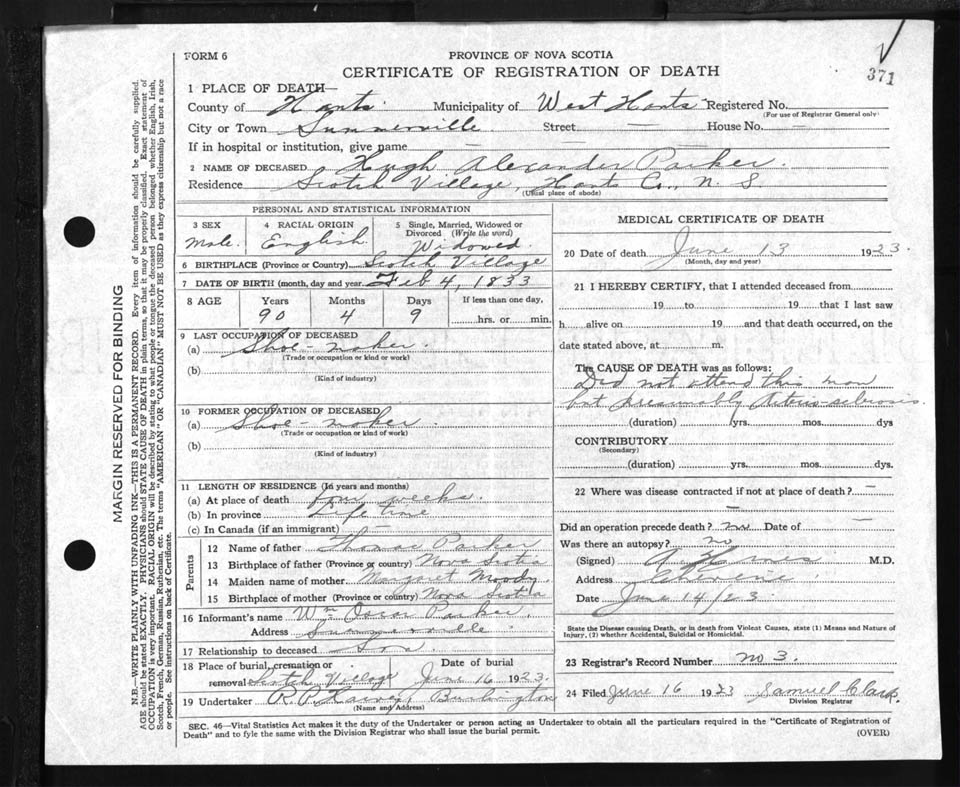 371
FORM 6
PROVINCE OF NOVA SCOTIA
CERTIFICATE OF REGISTRATION OF DEATH
1 PLACE OF DEATH—
County of Hants Municipality of West Hants Registered No.
(For use of Registrar General only)
City or Town Summerville Street — House No. —
If in hospital or institution, give name —
2 NAME OF DECEASED Hugh Alexander Parker.
Residence Scotch Village, Hants Co., N. S.
(Usual place of abode)
PERSONAL AND STATISTICAL INFORMATION
3 SEX
Male.
4 RACIAL ORIGIN
English
5 Single, Married, Widowed or Divorced (Write the word)
Widowed.
6 BIRTHPLACE (Province or Country) Scotch Village
7 DATE OF BIRTH (month, day and year) Feb 4, 1833
8 AGE Years Months Days If less than one day,
90 4 9 hrs. or min.
9 LAST OCCUPATION OF DECEASED
(a) Shoe-maker.
(Trade or occupation or kind of work)
(b)
(Kind of industry)
10 FORMER OCCUPATION OF DECEASED
(a) Shoe-maker.
(Trade or occupation or kind of work)
(b)
(Kind of industry)
11 LENGTH OF RESIDENCE (In years and months)
(a) At place of death four weeks.
(b) In province Life time
(c) In Canada (if an immigrant) —
Parents
12 Name of father Thomas Parker
13 Birthplace of father (Province or country) Nova Scotia
14 Maiden name of mother Margaret Moody.
15 Birthplace of mother (Province or country) Nova Scotia
16 Informant's name Wm Oscar Parker
Address Summerville
17 Relationship to deceased Son
18 Place of burial, cremation or removal Scotch Village
Date of burial
June 16 1923.
19 Undertaker R. P. Harvey, Burlington
(Name and Address)
MEDICAL CERTIFICATE OF DEATH
20 Date of death June 13 1923.
(Month, day and year)
21 I HEREBY CERTIFY, that I attended deceased from
19 to 19 that I last saw
h alive on 19 and that death occurred, on the
date stated above, at m.
The CAUSE OF DEATH was as follows:
Did not attend this man
but presumably Arterio-sclerosis.
(duration) yrs. mos. dys
CONTRIBUTORY
(Secondary)
(duration) yrs. mos. dys.
22 Where was disease contracted if not at place of death? —
—
Did an operation precede death? no Date of —
Was there an autopsy? no
(Signed) M.D.
Address
Date June 14/23.
State the Disease causing Death, or in death from Violent Causes, state (1) Means and Nature of
Injury, (2) whether Accidental, Suicidal or Homicidal.
23 Registrar's Record Number no 3.
24 Filed June 16 1923 Samuel Clark.
Division Registrar
SEC. 46—Vital Statistics Act makes it the duty of the Undertaker or person acting as Undertaker to obtain all the particulars required in the "Certificate of Registration of
Death" and to fyle the same with the Division Registrar who shall issue the burial permit.
(OVER)
MARGIN RESERVED FOR BINDING
N.B.—WRITE PLAINLY WITH UNFADING INK—THIS IS A PERMANENT RECORD. Every item of information should be carefully supplied.
AGE should be stated EXACTLY. PHYSICIANS should STATE CAUSE OF DEATH in plain terms, so that it may be properly classified. Exact statement of
OCCUPATION is very important. RACIAL ORIGIN will be described by stating to what people or tongue the deceased person belonged whether English, Irish,
Scotch, French, German, Russian, Ruthenian, etc. The terms "AMERICAN" OR "CANADIAN" MUST NOT BE USED as they express citizenship but not a race
or people. See instructions on back of Certificate.